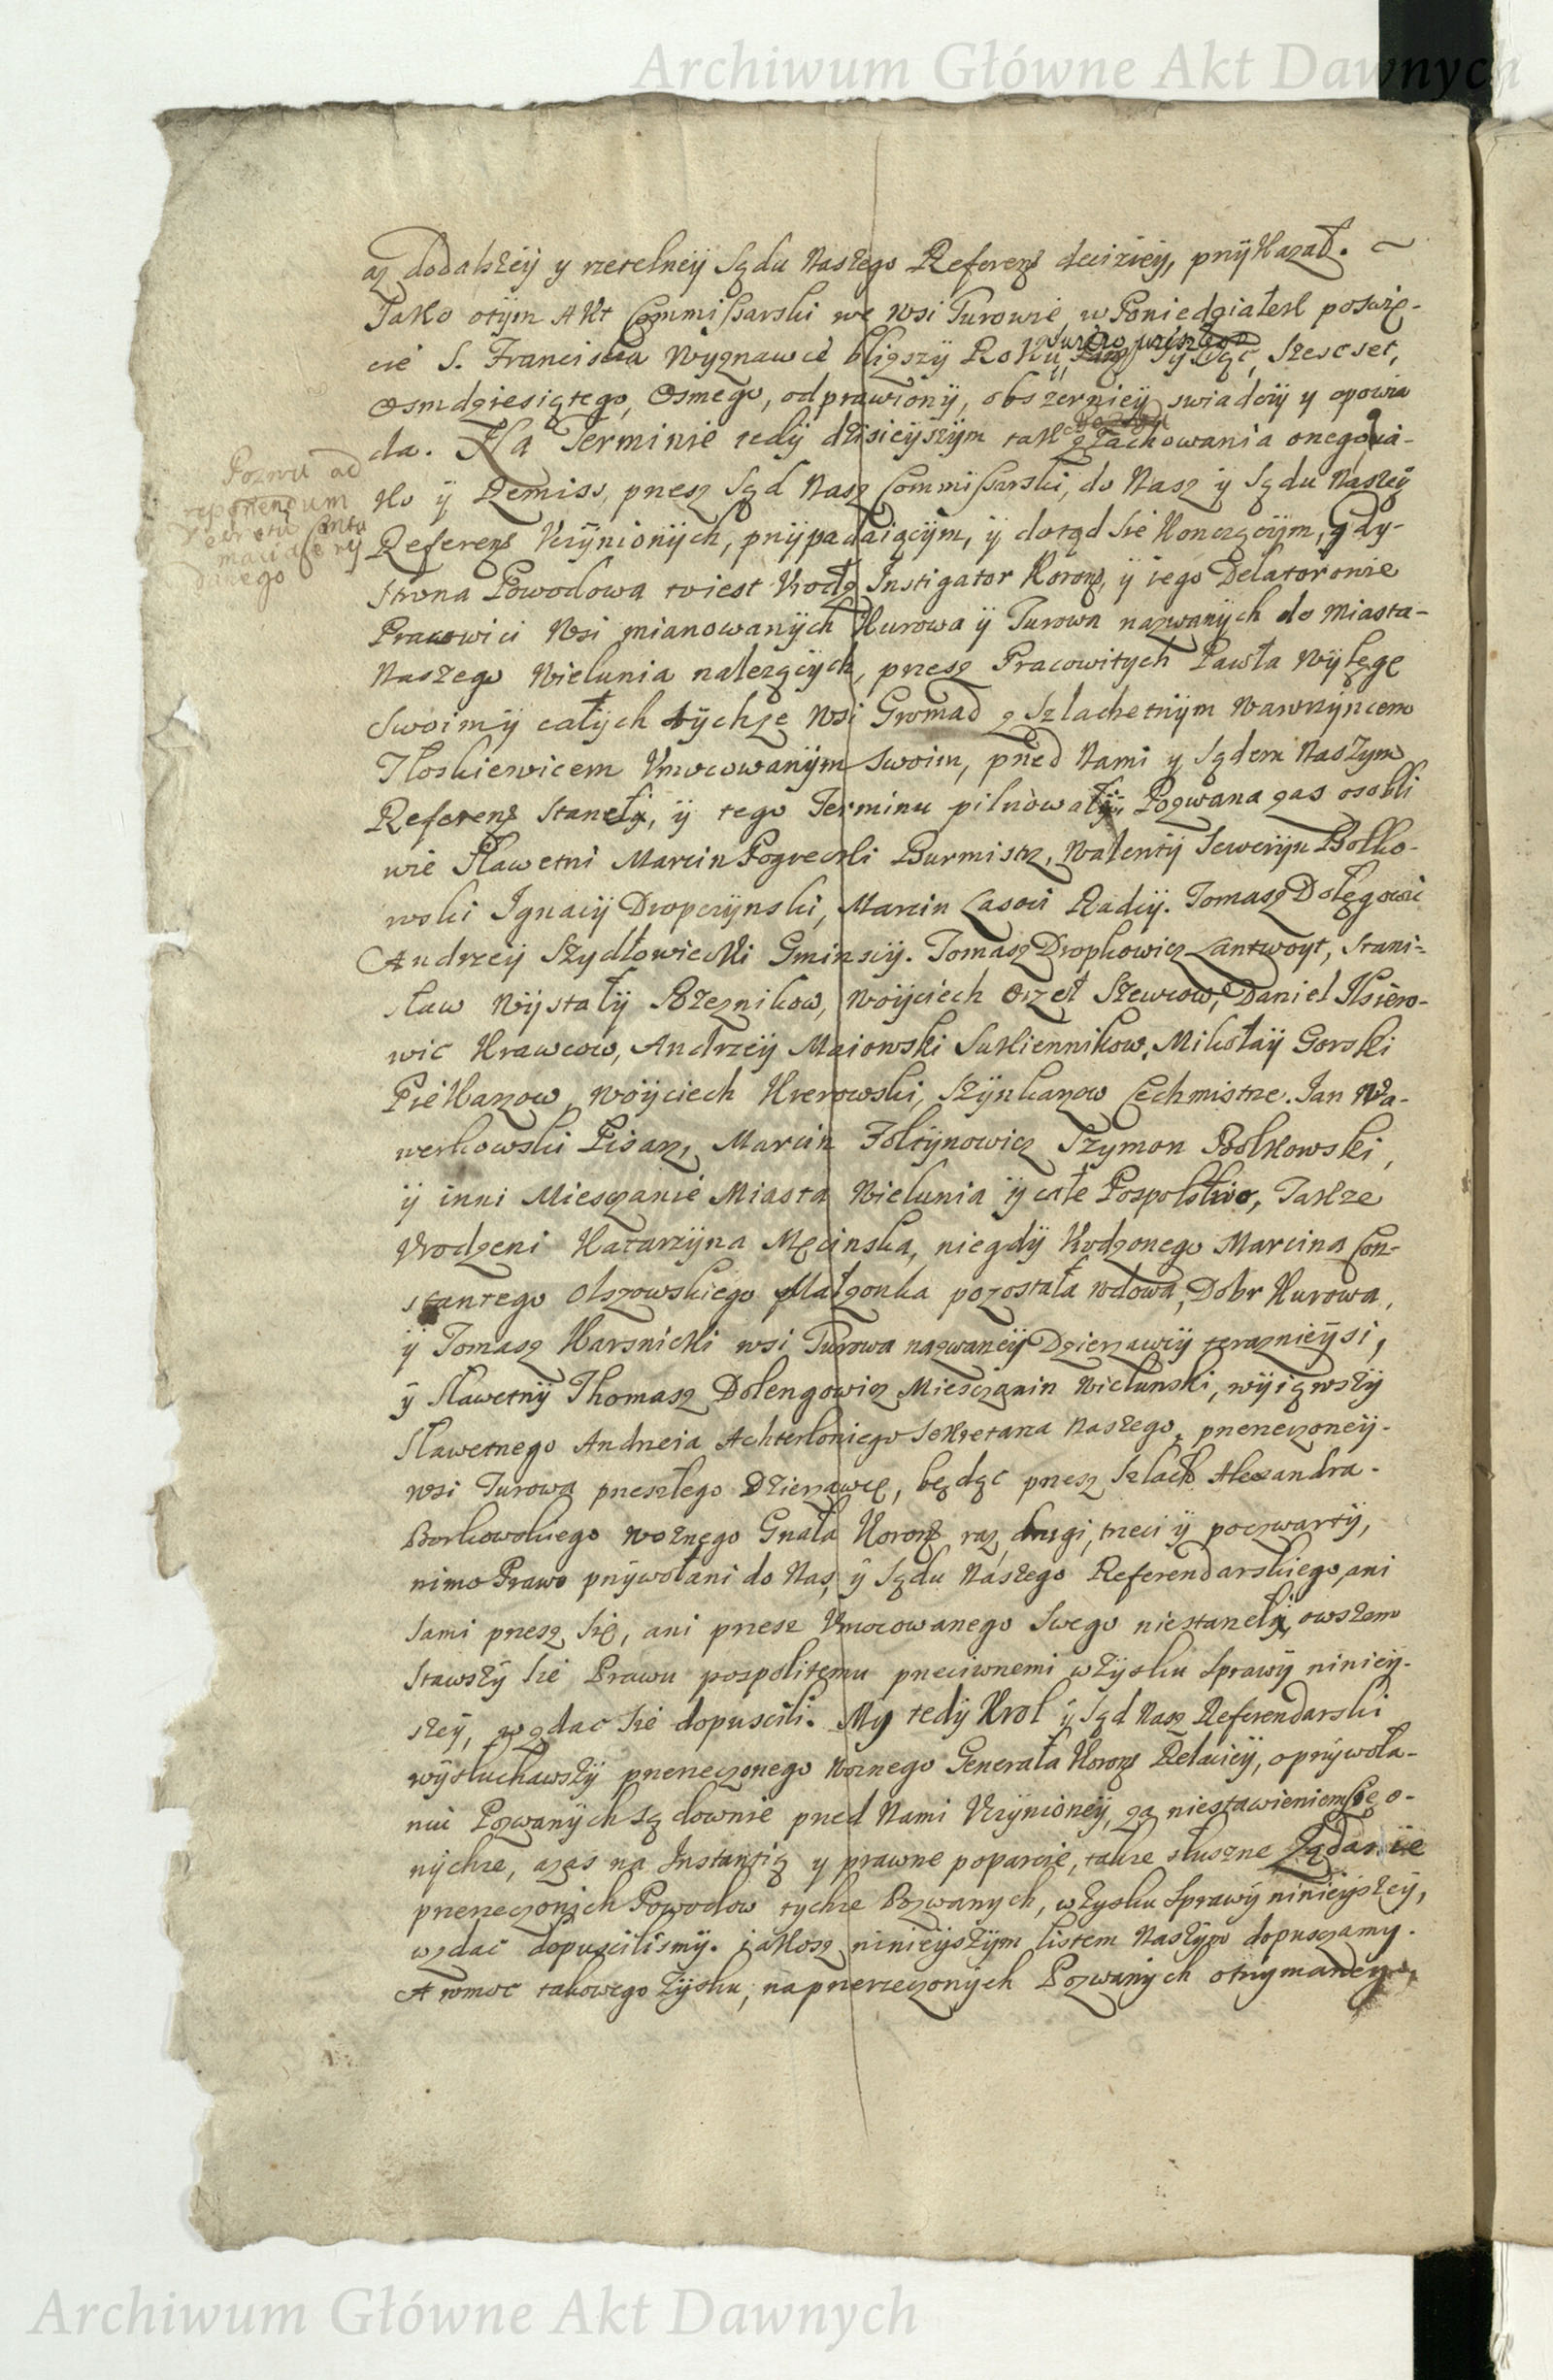 Archiwum Główne Akt Dawnych
aż do dalszey y rzetelney Sądu Naszego Referens deciziey, przykazał.
Jako otym Akt Commissarski we wsi Turowie, w Poniedziałek poświę-
cie S. Franciszka Wyznawce bliższy Roku, Tysiąc, Szescset,
Osmdziesiątego, Osmego, odprawiony, obszerniey swiadczy y opowia
da. Na Terminie tedy dzisieyszym tak z zachowania onego ia-
ko y Remiss, przesz Sąd Nasz Commissarski, do Nasz y Sądu Naszey
Pozwu ad
reponendum
Decretu Contu
maciae ny
danego
Referens Uczynionych, przypadaiącym, y dotąd się konczącym, gdy
Strona Powodowa to iest Urodz Instigator Koron, y iego Delatorowie
Pracowici Wsi mianowanych Kurowa y Turowa nazwanych do Miasta
Naszego Wielunia należących, przesz Pracowitych Pawła Wylęgę
Swoimy całych tychże Wsi Gromad z Szlachetnym Wawrzyncem
Iloskiewicem Umocowanym Swoim, przed Nami y Sądem Naszym
Referens Staneły, y tego Terminu pilnowały, Pozwana zas osobli
wie Sławetni Marcin Pogrecki Burmistz, Walenty Seweryn Bolko-
wski Ignacy Dropczynski, Marcin Łasoci Radcy. Tomasz Dolęgowic
Andrzey Szydłowiecki Gminscy. Tomasz Dropkowicz Lantwoyt, Stani-
sław Wystały Rzeznikow, Woyciech Orzeł Szewcow, Daniel Ksiero-
wic Krawcow, Andrzey Maiowski Sukiennikow, Mikołay Gorski
Piekarzow, Woyciech Kierowski, Szynkarzow Cechmistrze. Jan Wa-
werkowski Pisarz, Marcin Zołtynowicz Szymon Bolkowski,
y inni Miesczanie Miasta Wielunia y całe Pospolstwo, Takze
Urodzeni Katarzyna Męcinska, niegdy Urodzonego Marcina Con-
stantego Olszowskiego Małzonka pozostała wdowa, Dobr Kurowa,
y Tomasz Karsnicki wsi Turowa nazwaney Dzierzawcy teraznieysi,
y Sławetny Thomasz Dolengowicz Miesczanin Wielunski, wyiąwszy
Sławetnego Andrzeia Achterloniego Sekretarza Naszego, przerzeczoney
wsi Turowa przeszłego Dzierzawcę, będąc przesz Szlach Alexandra
Borkowskiego Woznego Gnała Koron raz, drugi, trzeci y poczwarty,
nimo Prawo przywołani do Nas, y Sądu Naszego Referendarskiego, ani
sami przesz się, ani przesz Umocowanego Swego niestaneły, owszem
Stawszy się Prawu pospolitemu przeciwnemi w Zysku Sprawy niniey-
szey, wzdac się dopuscili. My tedy Krol y Sąd Nasz Referendarski
wysłuchawszy przerzeczonego Woznego Generała Koron Relaciey, o przywoła-
niu Pozwanych sądownie przed Nami Uczynioney, za niestawieniem się o-
nychze, azas na Instantią y prawne poparcie, takze słuszne Ządanie
przerzeczonych Powodow tychze Pozwanych, w Zysku Sprawy ninieyszey,
wzdac dopuscilismy. iakosz ninieyszym listem Naszym dopuszamy.
A w moc takowego Zysku, na przerzeczonych Pozwanych otrzymaney,
Archiwum Główne Akt Dawnych